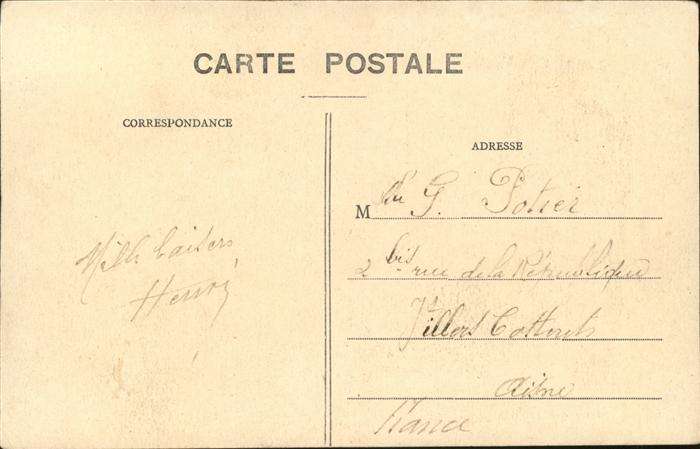 CARTE POSTALE
CORRESPONDANCE
Mille baisers
Henri
ADRESSE
M G. Potier
2 bis rue de la République
Villers Cotterets
Aisne
France